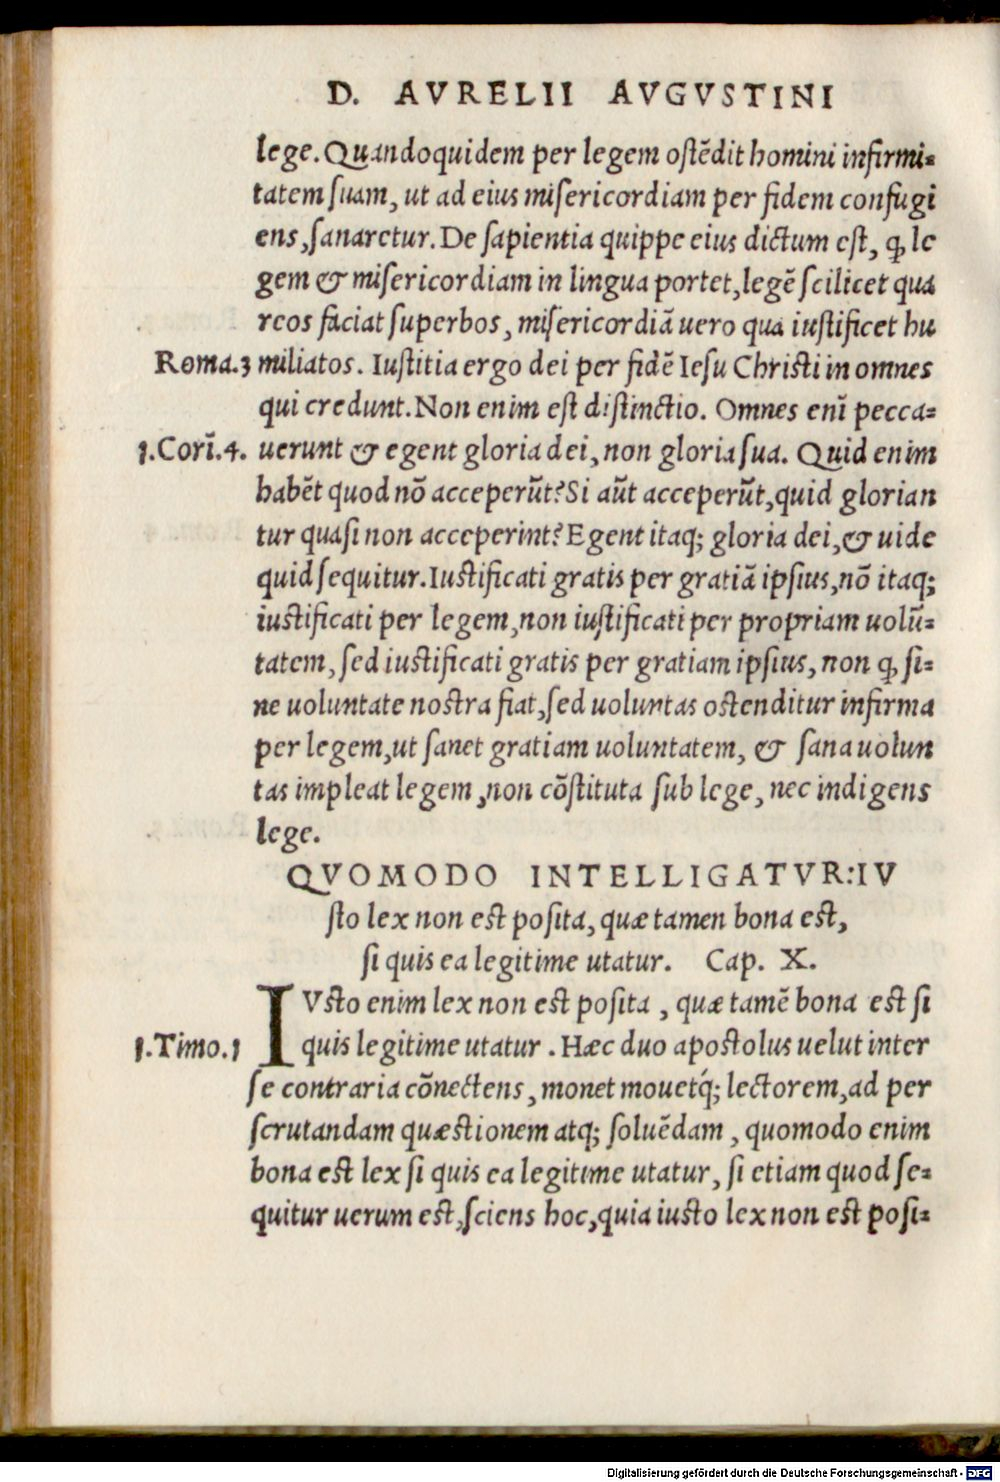 D. AVRELII AVGVSTINI
lege. Quandoquidem per legem ostēdit homini infirmi-
tatem suam, ut ad eius misericordiam per fidem confugi
ens, sanaretur. De sapientia quippe eius dictum est, ꝙ le
gem & misericordiam in lingua portet, legē scilicet qua
reos faciat superbos, misericordiā uero qua iustificet hu
Roma.3 miliatos. Iustitia ergo dei per fidē Iesu Christi in omnes
qui credunt. Non enim est distinctio. Omnes enī pecca-
1.Corī.4. uerunt & egent gloria dei, non gloria sua. Quid enim
habēt quod nō acceperūt? Si aūt acceperūt, quid glorian
tur quasi non acceperint? Egent itaq; gloria dei, & uide
quid sequitur. Iustificati gratis per gratiā ipsius, nō itaq;
iustificati per legem, non iustificati per propriam uolū-
tatem, sed iustificati gratis per gratiam ipsius, non ꝙ si-
ne uoluntate nostra fiat, sed uoluntas ostenditur infirma
per legem, ut sanet gratiam uoluntatem, & sana uolun
tas impleat legem, non cōstituta sub lege, nec indigens
lege.
QVOMODO INTELLIGATVR: IV
sto lex non est posita, quæ tamen bona est,
si quis ea legitime utatur. Cap. X.
IVsto enim lex non est posita, quæ tamē bona est si
1.Timo.1 quis legitime utatur. Hæc duo apostolus uelut inter
se contraria cōnectens, monet mouetq́; lectorem, ad per
scrutandam quæstionem atq; soluēdam, quomodo enim
bona est lex si quis ea legitime utatur, si etiam quod se-
quitur uerum est, sciens hoc, quia iusto lex non est posi-
Digitalisierung gefördert durch die Deutsche Forschungsgemeinschaft - DFG